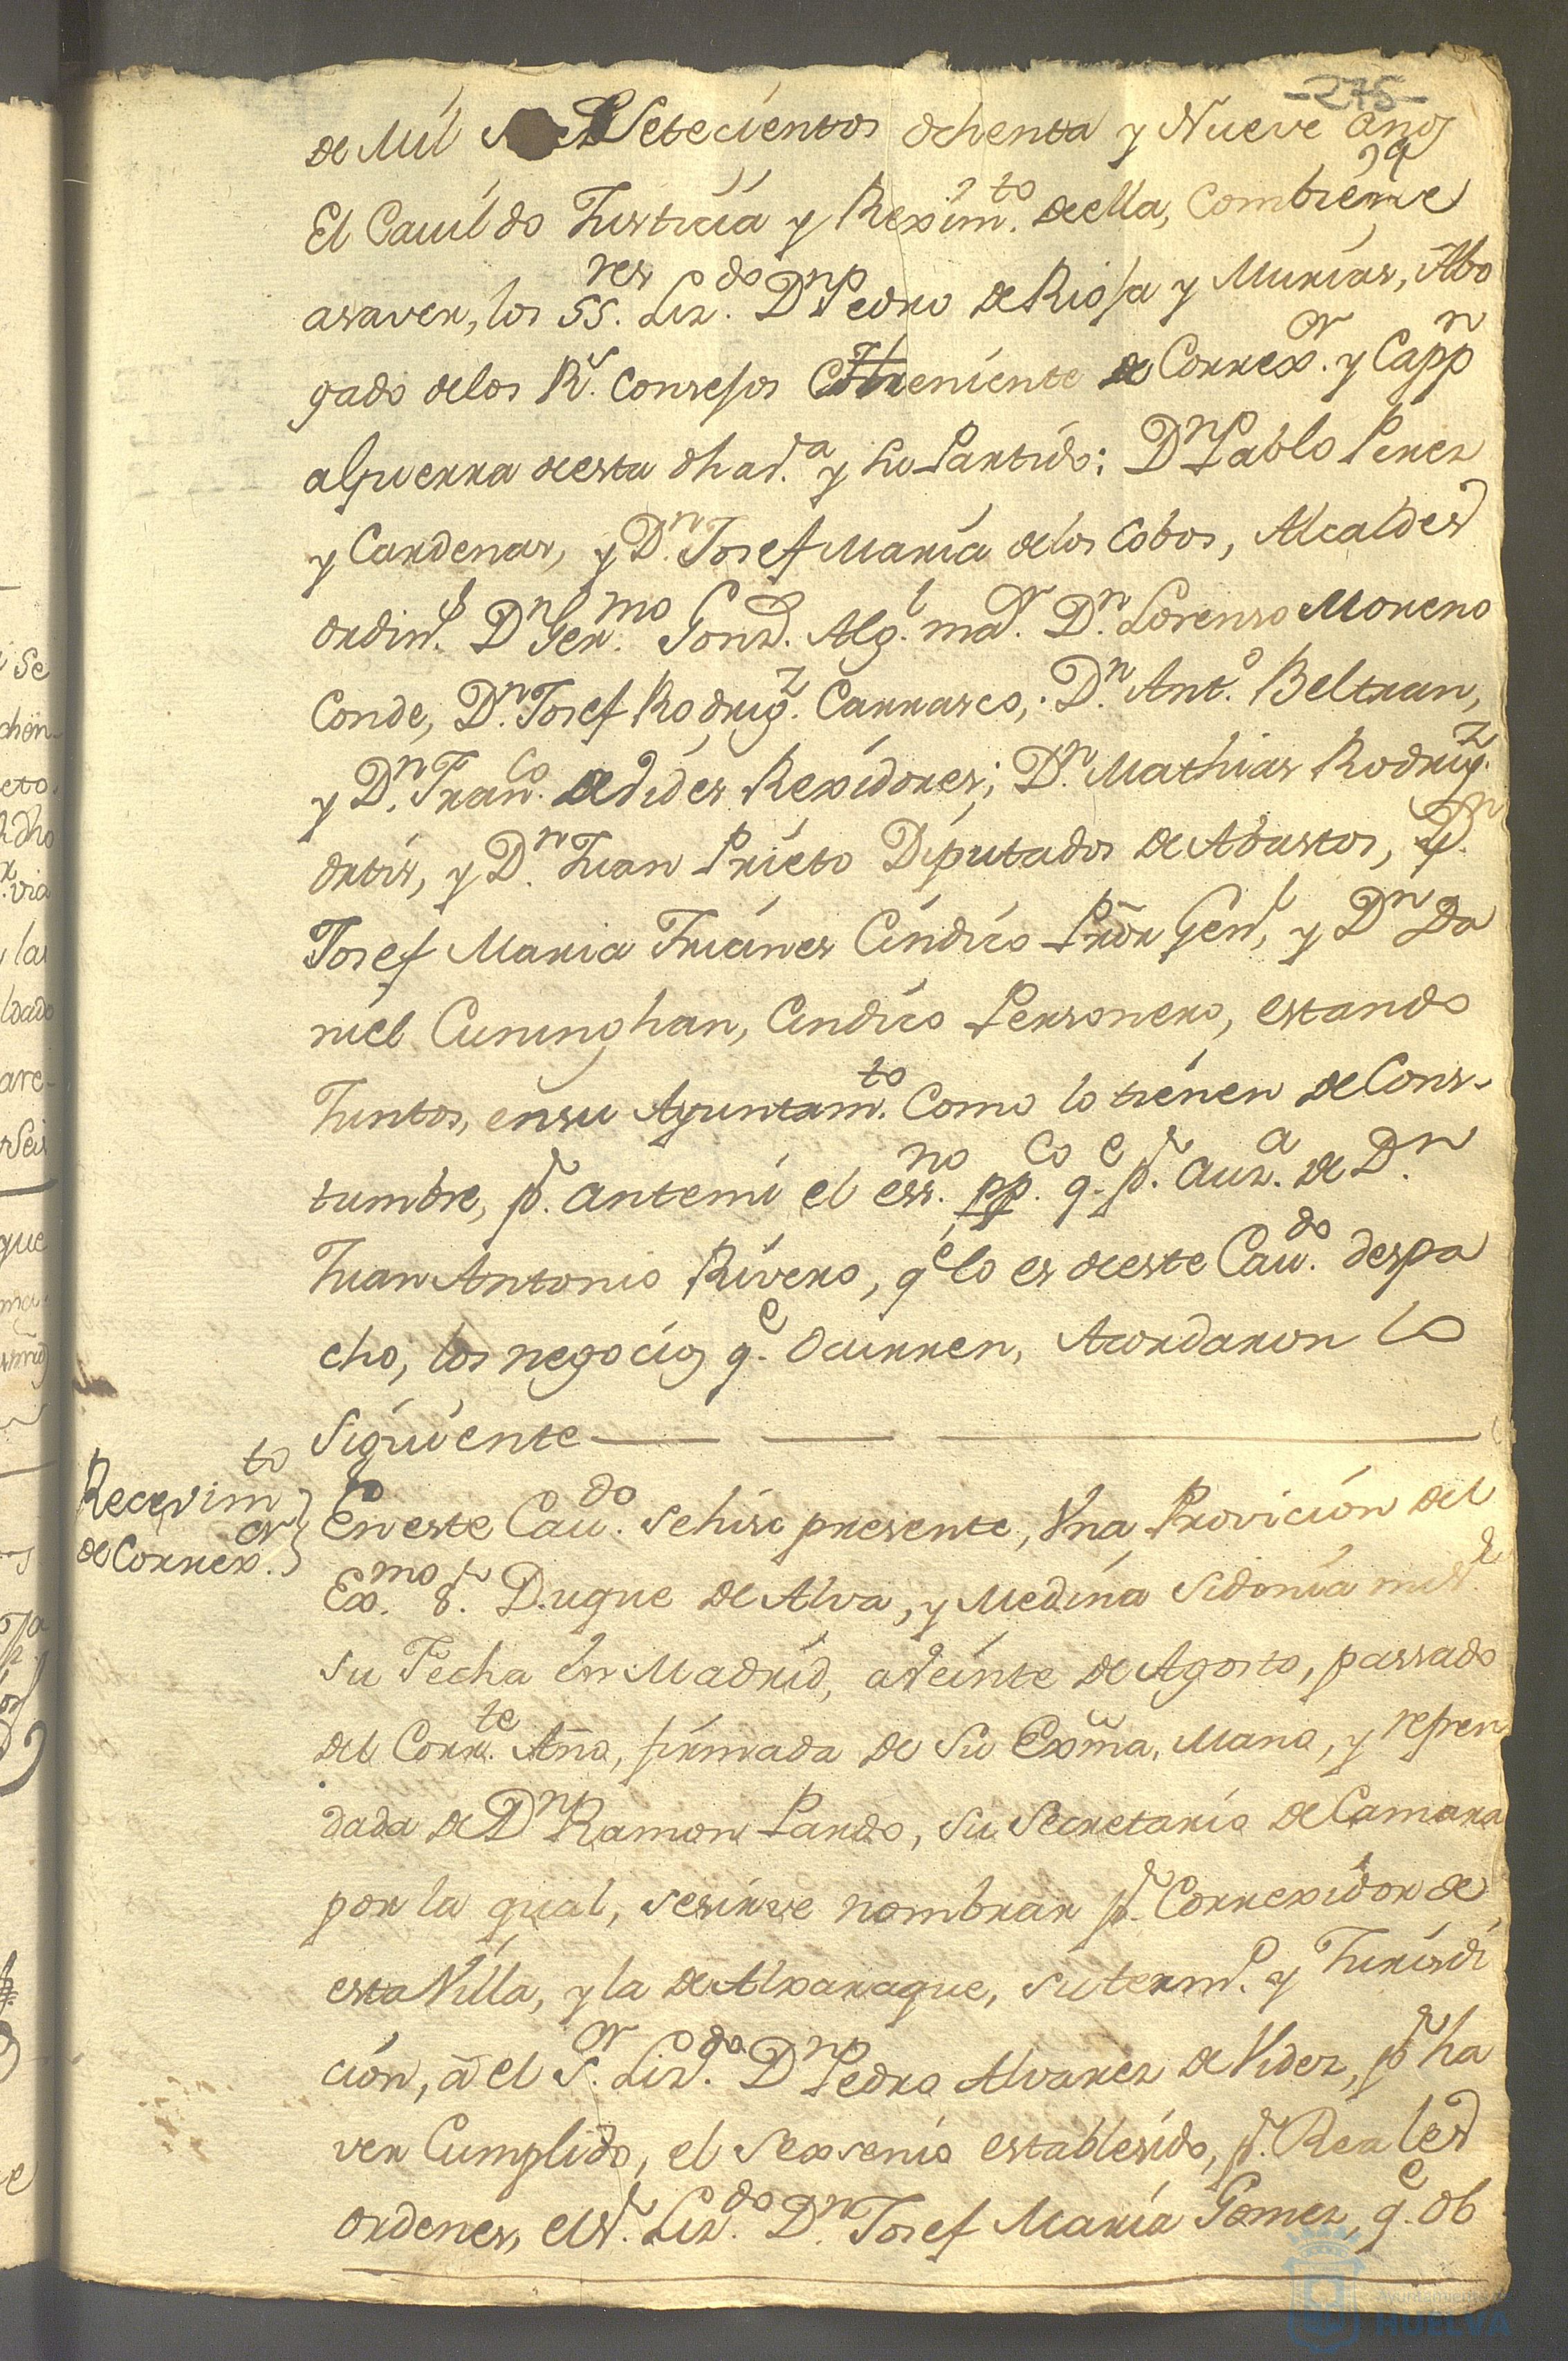 -275-
de Mil Setecientos ochenta y Nueve años
El Cavildo Justicia y Rexim.to de ella, combiene
asaver, los SS.res Liz.do D.n Pedro de Riosa y Murias, Abo
gado de los R.s Consejos Theniente de Correx.or y Capp.n
alguerra de esta dha v.a y su Partido: D.n Pablo Perez
y Cardenas, y D.n Josef Maria de los Cobos, Alcaldes
ordin.s D.n Ger.mo Gonz. Alg.l ma.r D.n Lorenzo Moreno
Conde, D.n Josef Rodrig.z Carrasco, D.n Ant.o Beltran,
y D.n Fran.co de Vides Rexidores; D.n Mathias Rodrig.z
ortis, y D.n Juan Prieto Diputados de Abastos, D.n
Josef Maria Trianes Cindico Pror Gen.l, y D.n Da
niel Cuninghan, Cindico Personero, estando
Juntos, en su Ayuntam.to Como lo tienen de Cons-
tumbre, p.r antemi el ess.no pp.co q.e p.r auz.a de D.n
Juan Antonio Rivero, q.e lo es de este Cau.do despa
cho, los negocios q.e ocurren, Acordaron lo
Siguiente
Recevim.to
de Correx.or
En este Cau.do se hiso presente, Una Provicion del
Ex.mo S.r Duque de Alva, y Medina Sidonia mi s.r
su Fecha en Madrid, a Veinte de Agosto, passado
del Corr.te Año, firmada de Su Exma. Mano, y refren
dada de D.n Ramon Pardo, su Secretario de Camara
por la qual, se sirve nombrar p.r Correxidor de
esta Villa, y la de Alxaraque, su term.o y Jurisdi
cion, á el S.or Liz.do D.n Pedro Alvarez de Videz, p.r ha
ver Cumplido, el sexsenio establesido, p.r Reales
ordenes, el S.r Liz.do D.n Josef Maria Gomez, q.e ob
Ayuntamiento
HUELVA